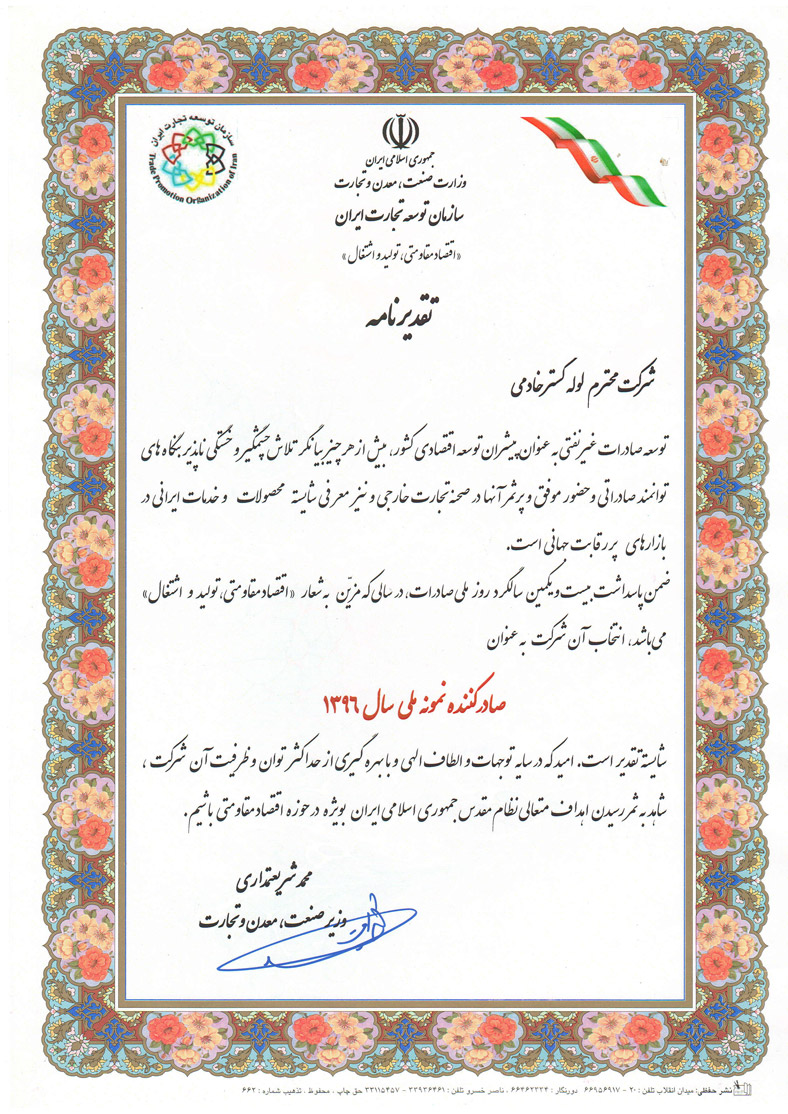 سازمان توسعه تجارت ایران
Trade Promotion Organization of Iran
جمهوری اسلامی ایران
وزارت صنعت، معدن و تجارت
سازمان توسعه تجارت ایران
«اقتصاد مقاومتی، تولید و اشتغال»
تقدیرنامه
شرکت محترم لوله گستر خادمی
توسعه صادرات غیرنفتی به عنوان پیشران توسعه اقتصادی کشور، بیش از هر چیز بیانگر تلاش چشمگیر و خستگی ناپذیر بنگاه های
توانمند صادراتی و حضور موفق و پرثمر آنها در صحنه تجارت خارجی و نیز معرفی شایسته محصولات و خدمات ایرانی در
بازارهای پر رقابت جهانی است.
ضمن پاسداشت بیست و یکمین سالگرد روز ملی صادرات، در سالی که مزین به شعار «اقتصاد مقاومتی، تولید و اشتغال»
می باشد، انتخاب آن شرکت به عنوان
صادرکننده نمونه ملی سال ۱۳۹۶
شایسته تقدیر است. امید که در سایه توجهات و الطاف الهی و با بهره گیری از حداکثر توان و ظرفیت آن شرکت ،
شاهد به ثمر رسیدن اهداف متعالی نظام مقدس جمهوری اسلامی ایران بویژه در حوزه اقتصاد مقاومتی باشیم.
محمد شریعتمداری
وزیر صنعت، معدن و تجارت
نشر حفظی: میدان انقلاب تلفن : ۲۰ - ۶۶۹۵۶۹۱۷ دورنگار : ۶۶۴۶۲۲۲۴ ، ناصر خسرو تلفن : ۳۳۹۳۶۴۶۱ - ۳۳۱۱۵۴۵۷ حق چاپ ، محفوظ ، تذهیب شماره : ۶۶۳